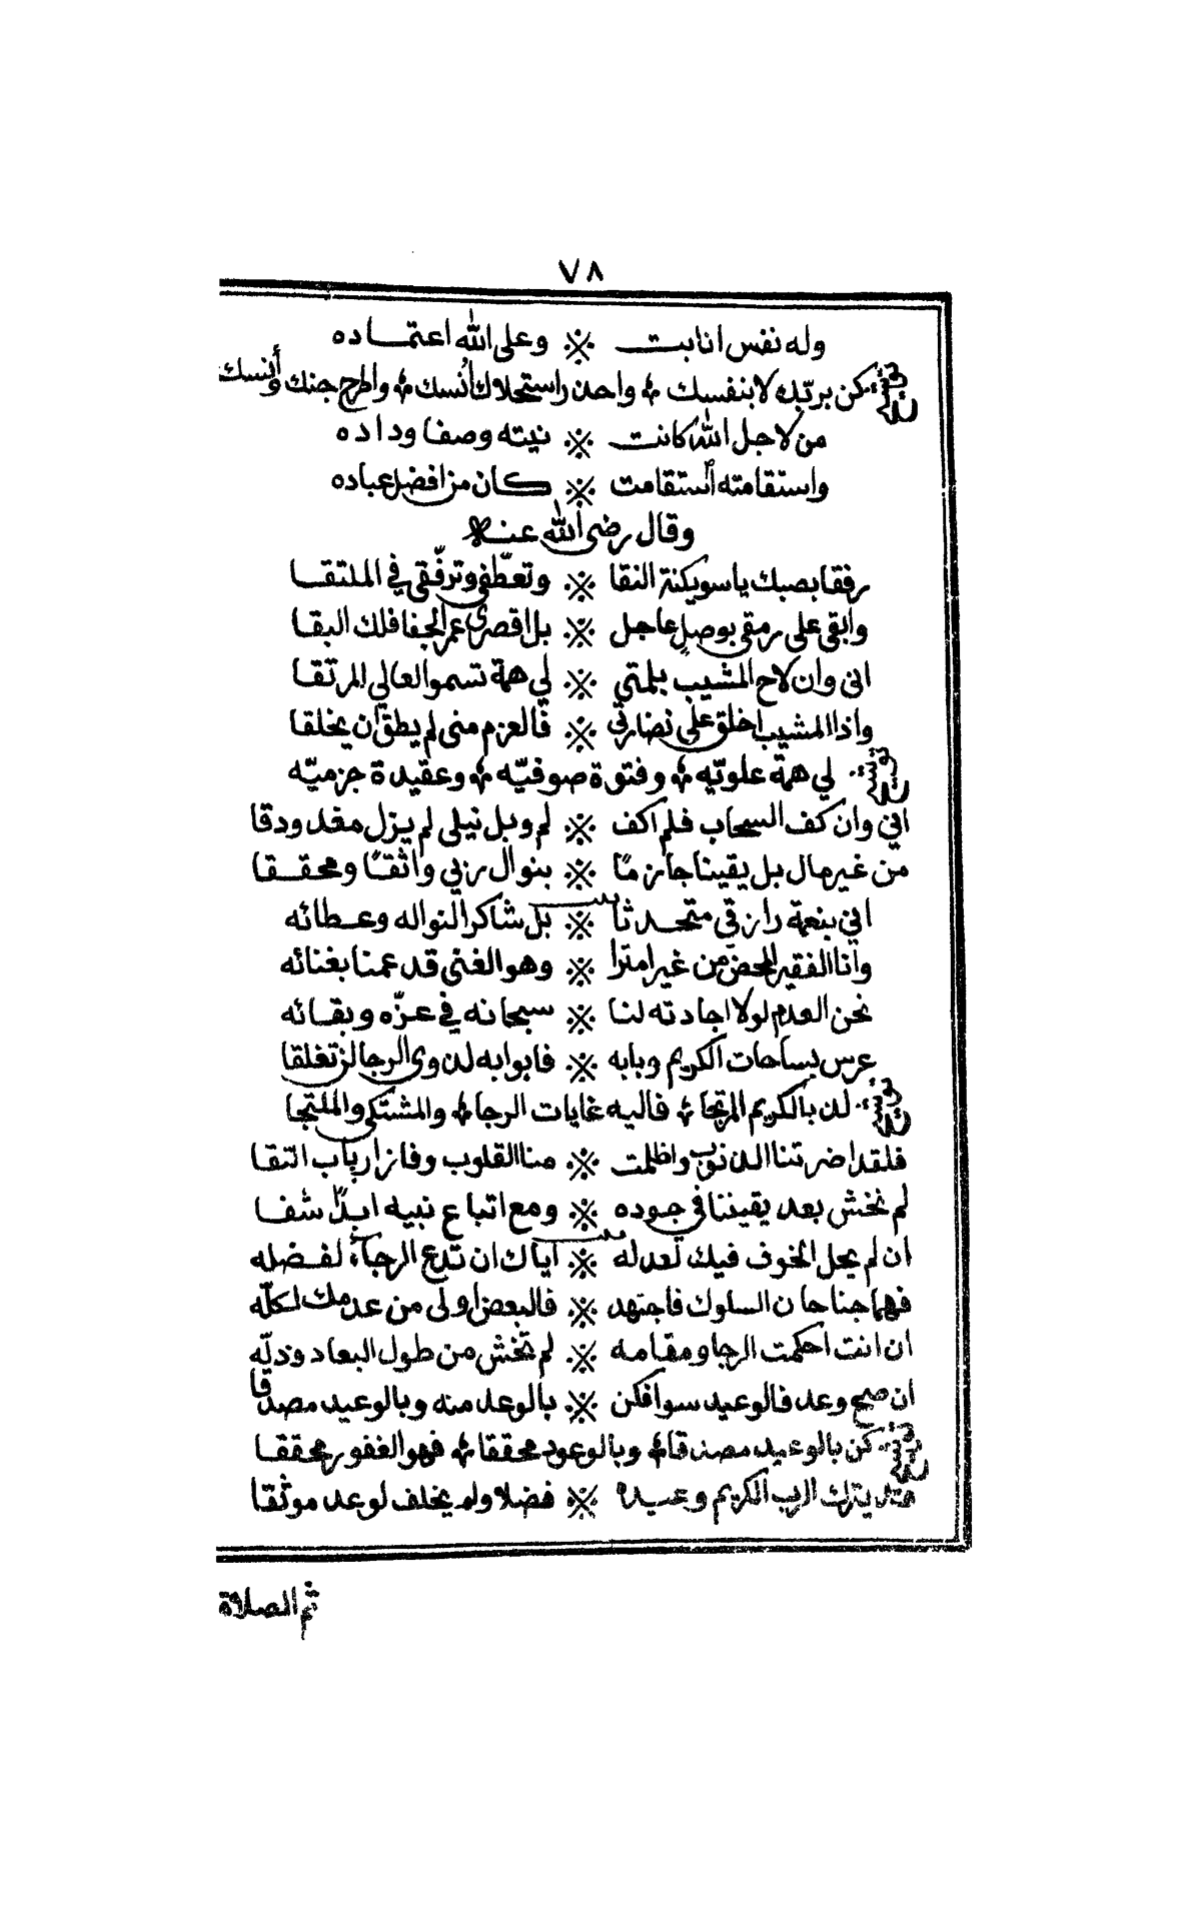 ٧٨
وله نفس انابت ※ وعلى الله اعتماده
توشيح كن بربّك لا بنفسك ؞ واحذر استحلاك أنسك ؞ واطرح جنك وأنسك
من لاجل الله كانت ※ نيته وصفا وداده
واستقامته استقامت ※ كان من افضل عباده
وقال رضي الله عنه
رفقا بصبك يا سويكنة النقا ※ وتعطّفي وترفّقي في الملتقا
وابقي على رمقي بوصل عاجل ※ بل اقصري عمر الجفا فلك البقا
اني وان لاح المشيب بلمتي ※ لي همة تسمو العالي المرتقا
واذا المشيب اخلق على نضارتي ※ فالعزم مني لم يطق ان يخلقا
توشيح لي همة علويّه ؞ وفتوة صوفيّه ؞ وعقيدة جزميّه
اني وان كف السحاب فلم اكف ※ لم وبل نيلي لم يزل مغدودقا
من غير مال بل يقينا جازمًا ※ بنوال ربي واثقًا ومحققا
اني بنعمة رازقي متحدثا ※ بل شاكر النواله وعطائه
وانا الفقير المحض من غير امترا ※ وهو الغني قد عمنا بغنائه
نحن العدم لولا اجادته لنا ※ سبحانه في عزّه وبقائه
عرس بساحات الكريم وبابه ※ فابوابه لذوي الرجا لن تغلقا
توشيح لذ بالكريم المرتجا ؞ فاليه غايات الرجا ؞ والمشتكى والملتجا
فلقد اضرتنا الذنوب واظلمت ※ منا القلوب وفاز ارباب التقا
لم نخش بعد يقيننا في جوده ※ ومع اتباع نبيه ابدًا شفا
ان لم يحل الخوف فيك لعدله ※ اياك ان تدع الرجاء لفضله
فهما جناحان السلوك فاجتهد ※ فالبعض اولى من عدمك لكلّه
ان انت احكمت الرجا ومقامه ※ لم تخش من طول البعاد وذلّه
ان صح وعد فالوعيد سوا فكن ※ بالوعد منه وبالوعيد مصدقا
توشيح كن بالوعيد مصدقا ؞ وبالوعود محققا ؞ فهو الغفور محققا
قد يترك الرب الكريم وعيده ※ فضلا ولم يخلف لوعد موثقا
ثم الصلاة